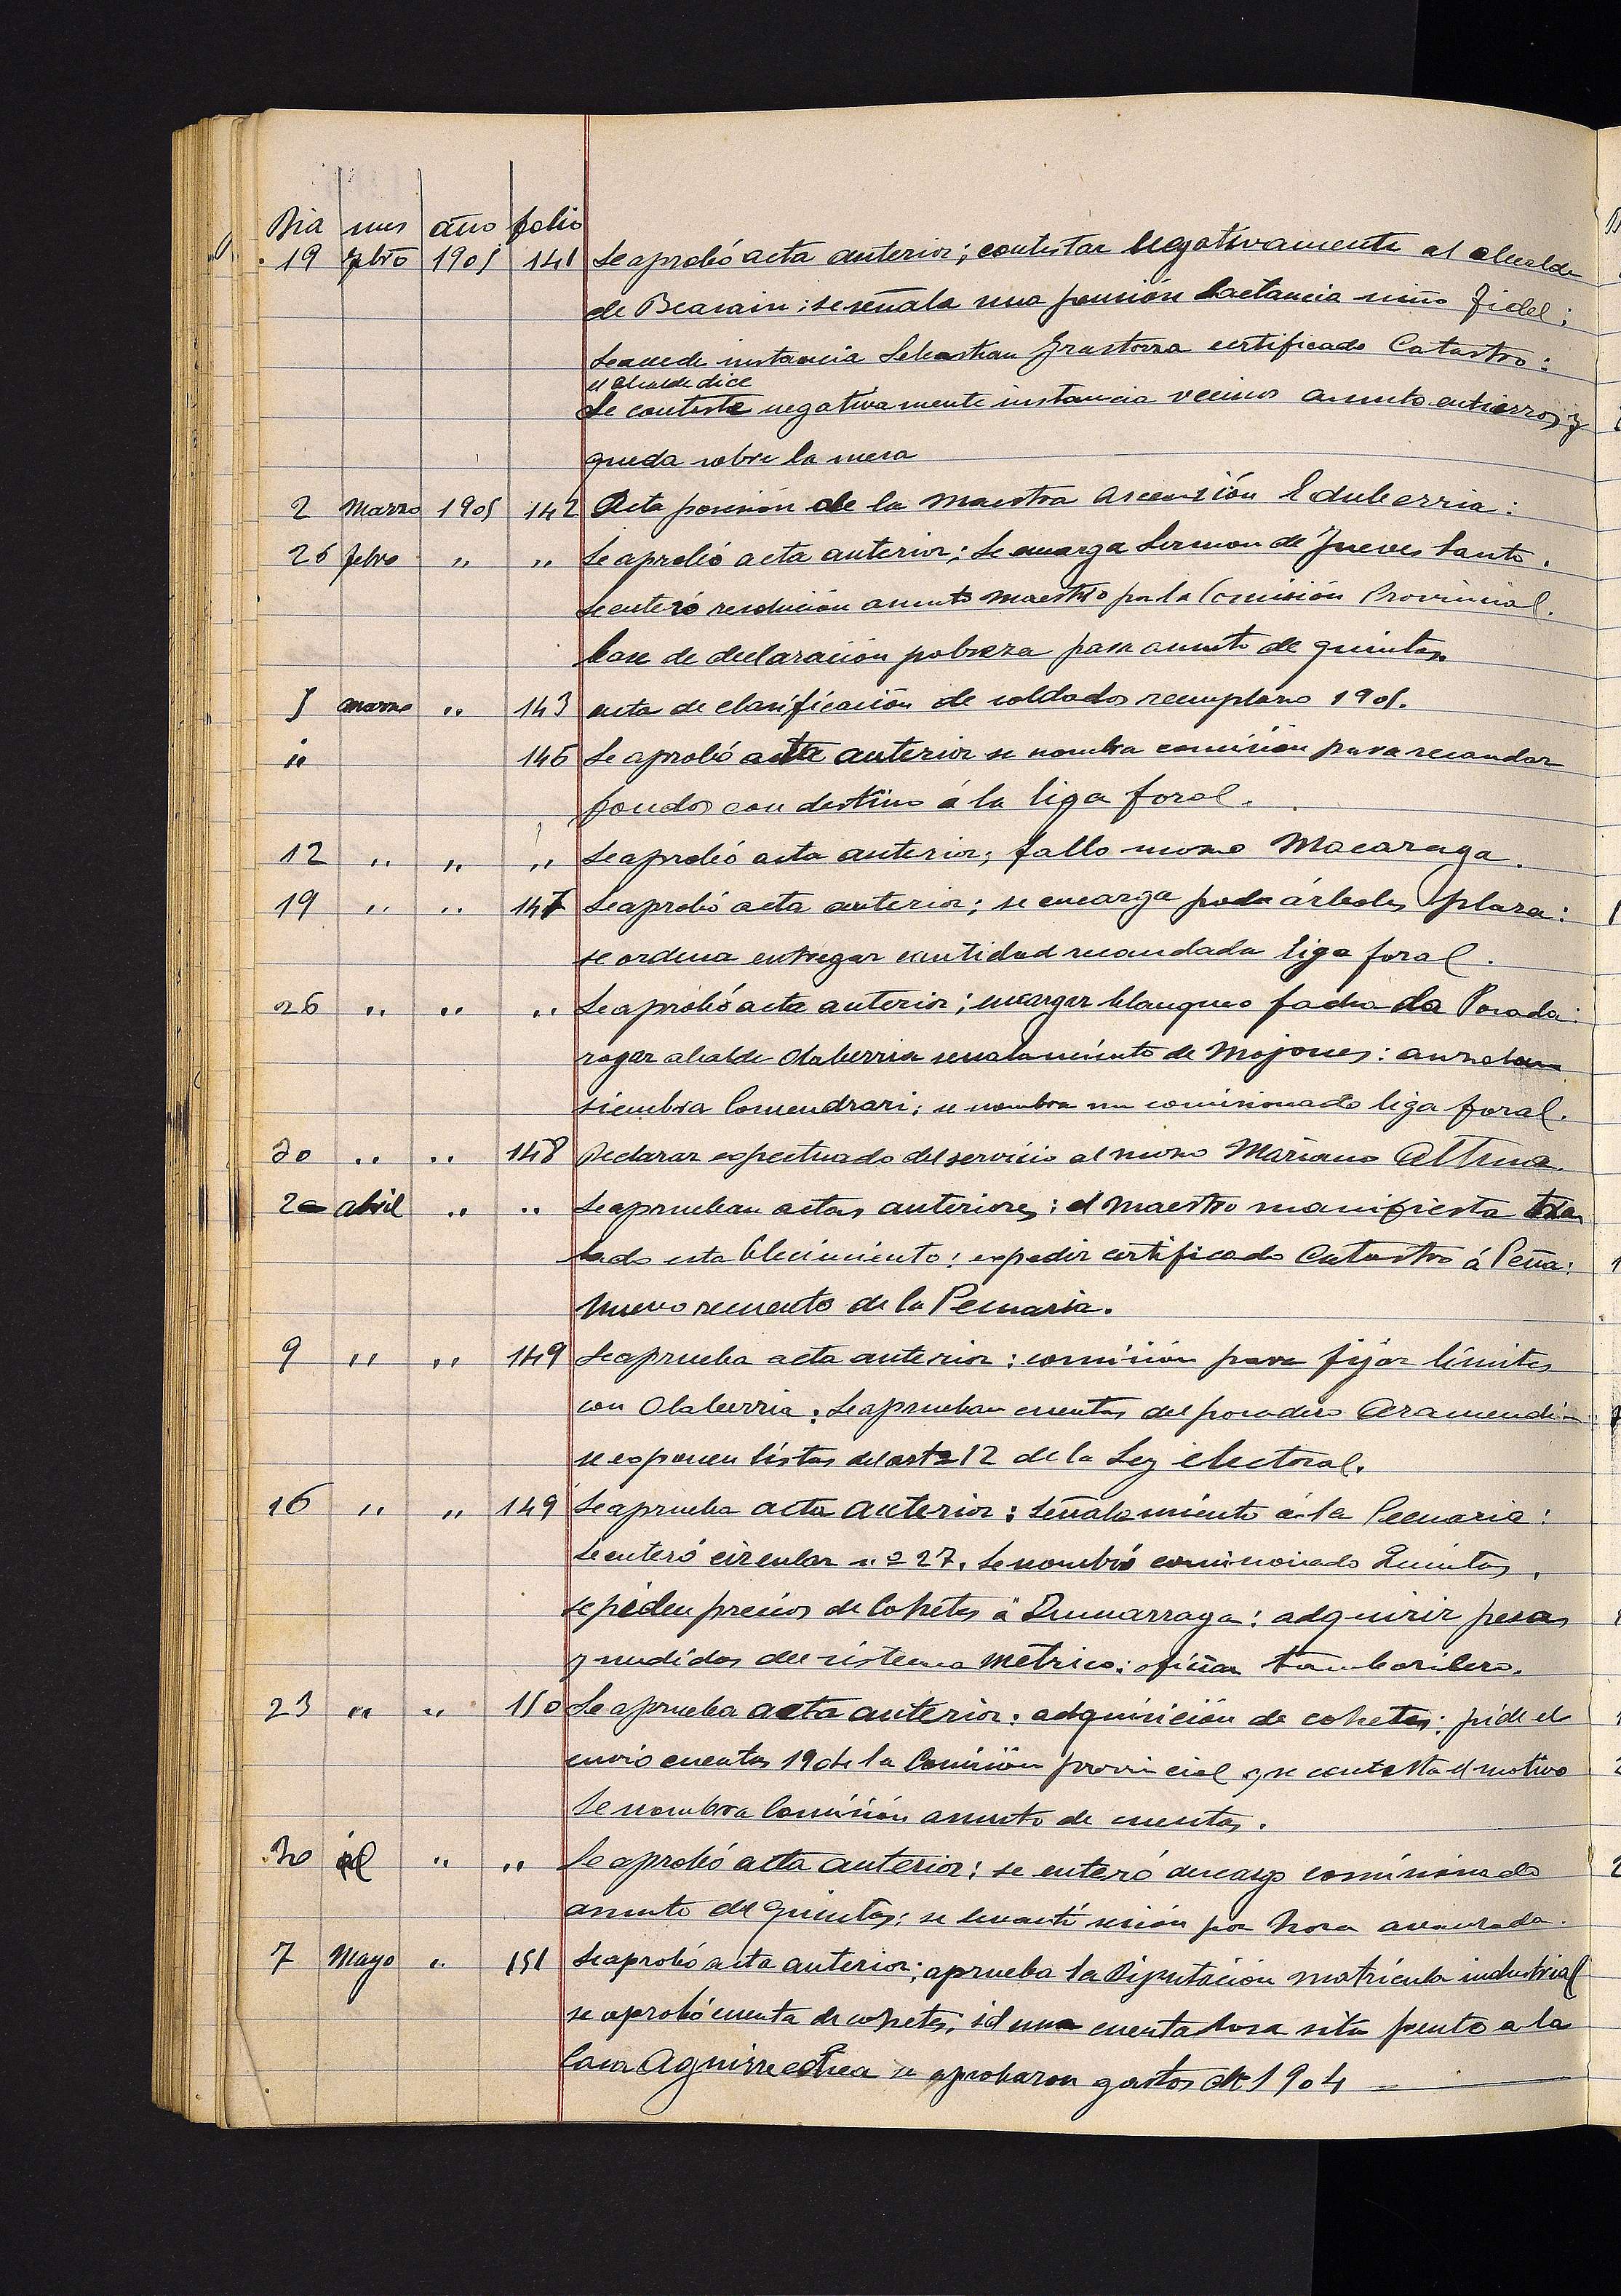 Dia mes año folio
19 febro 1905 141 Se aprobó acta anterior; contestar negativamente al alcalde
de Beasain: se señala una pensión lactancia niño Fidel:
Se accede instancia Sebastian Irastorza certificado Catastro:
el alcalde dice
Se conteste negativamente instancia vecinos asunto entierros y
queda sobre la mesa
2 Marzo 1905 142 Acta posesión de la maestra Ascensión Eduberria:
26 febro " " Se aprobó acta anterior; Se encarga Sermon de Jueves Santo.
se enteró resolución asunto maestro por la Comisión Provincial.
base de declaración pobreza para asunto de quintas.
5 marzo " 143 acta de clasificación de soldados reemplazo 1905.
" 146 Se aprobó acta anterior se nombra comisión para recaudar
fondos con destino á la liga foral.
12 " " " Se aprobó acta anterior; fallo mozo Macazaga.
19 " " 147 Se aprobó acta anterior; se encarga poda árboles plaza:
se ordena entregar cantidad recaudada liga foral.
26 " " " Se aprobó acta anterior; encargar blanqueo fachada Posada:
rogar alcalde Olaberria señalamiento de Mojones:
siembra Comendrari; se nombra un comisionado liga foral.
30 " " 148 Declarar exceptuado del servicio al mozo Mariano Altuna.
2 abril " " Se aprueban actas anteriores; el maestro manifiesta tras
lado establecimiento: expedir certificado Catastro á Peña:
Nuevo recuento de la Pecuaria.
9 " " 149 Se aprueba acta anterior: comisión para fijar límites
con Olaberria: Se aprueban cuentas del posadero Aramendi
se exponen listas del arto 12 de la Ley electoral.
16 " " 149 Se aprueba acta anterior: señalamiento á la Pecuaria:
Se enteró circular nº 27. Se nombró comisionado Quintas,
se piden precios de Cohetes á Zumarraga: adquirir pesas
y medidas del sistema métrico: oficiar tamborilero.
23 " " 150 Se aprueba acta anterior: adquisición de cohetes: pide el
envio cuentas 1904 la Comisión provincial y se contesta el motivo
Se nombra Comisión asunto de cuentas.
30 id " " Se aprobó acta anterior: se enteró descargo comisionado
asunto de Quintas: se levantó sesión por hora avanzada.
7 Mayo " 151 Se aprobó acta anterior; aprueba la Diputación matrícula industrial
se aprobó cuenta de cohetes; id una cuenta losa sita frente a la
Casa Aguirre echea se aprobaron gastos de 1904